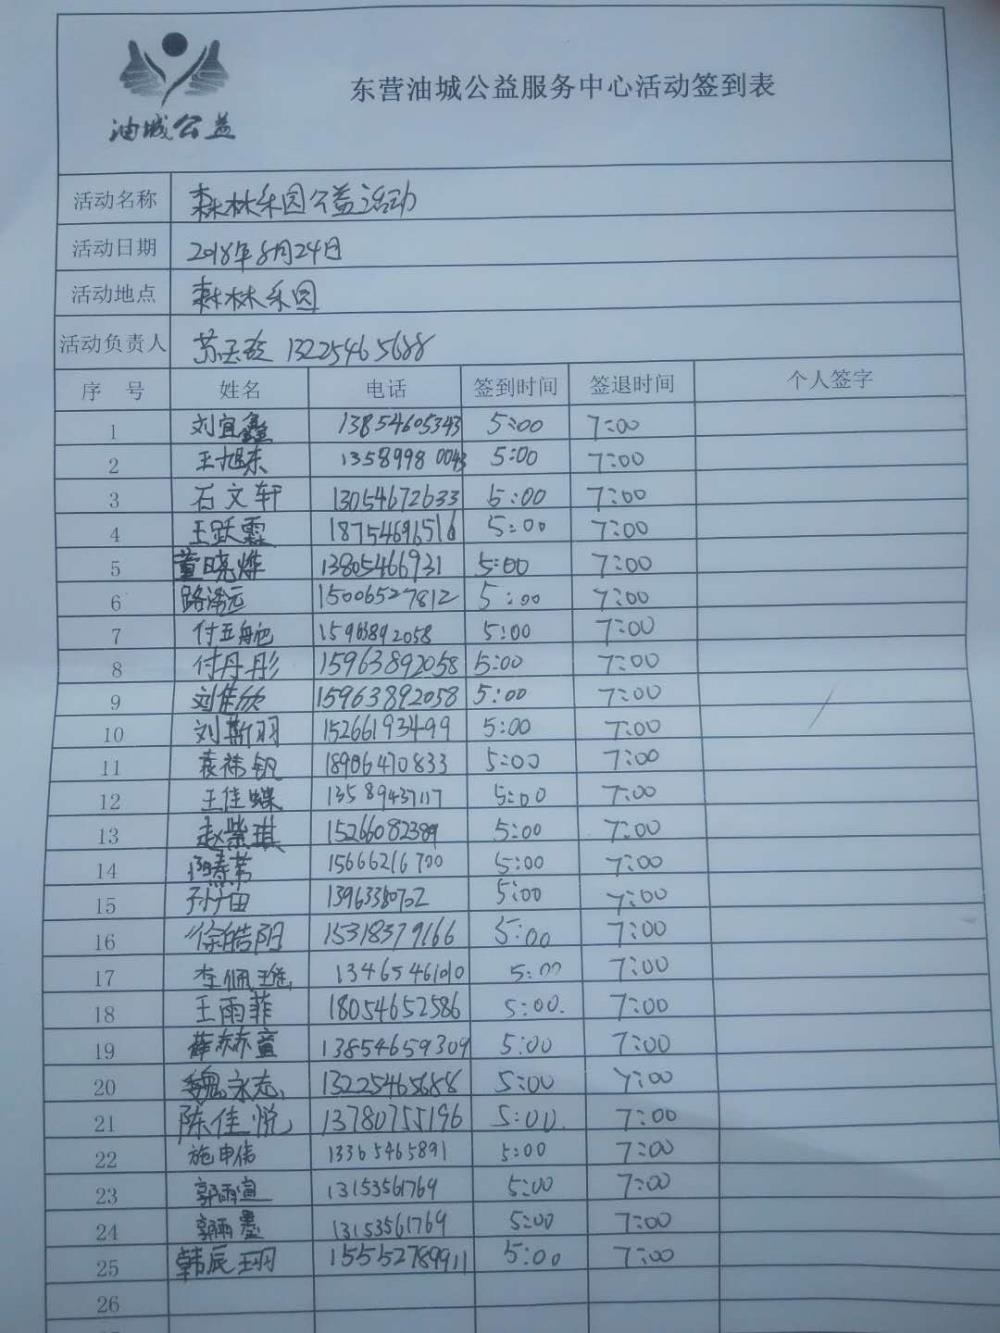 油城公益
东营油城公益服务中心活动签到表
活动名称 森林乐园公益活动
活动日期 2018年8月24日
活动地点 森林乐园
活动负责人 苏玉 13225465688
序号 姓名 电话 签到时间 签退时间 个人签字
1 刘宜鑫 13854605343 5:00 7:00
2 王旭东 13589980043 5:00 7:00
3 石文轩 13054672633 5:00 7:00
4 王跃霖 18754691516 5:00 7:00
5 董晓烨 13805466931 5:00 7:00
6 路鸿远 15006527812 5:00 7:00
7 付五舱 15963892058 5:00 7:00
8 付丹彤 15963892058 5:00 7:00
9 刘佳欣 15963892058 5:00 7:00
10 刘斯羽 15266193499 5:00 7:00
11 袁祎钒 18906470833 5:00 7:00
12 王佳蝶 13589437117 5:00 7:00
13 赵紫琪 15266082389 5:00 7:00
14 15666216700 5:00 7:00
15 5:00 7:00
16 徐皓阳 15318379166 5:00 7:00
17 李佩瑶 13465461010 5:00 7:00
18 王雨菲 18054652586 5:00. 7:00
19 薛赫童 13854659309 5:00 7:00
20 魏永志 13225465688 5:00 7:00
21 陈佳悦 13780755196 5:00. 7:00
22 施申伟 13365465891 5:00 7:00
23 郭雨宣 13153561769 5:00 7:00
24 郭雨墨 13153561769 5:00 7:00
25 韩辰玥 15552789911 5:00 7:00
26